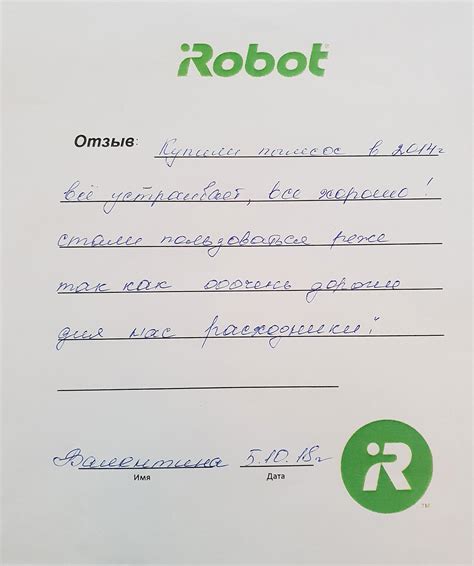 iRobot
Отзыв: Купили пылесос в 2014г
всё устраивает, все хорошо!
стали пользоваться реже
так как ооочень дорогие
для нас расходники!
Валентина 5.10.18г
Имя Дата
iR
TM